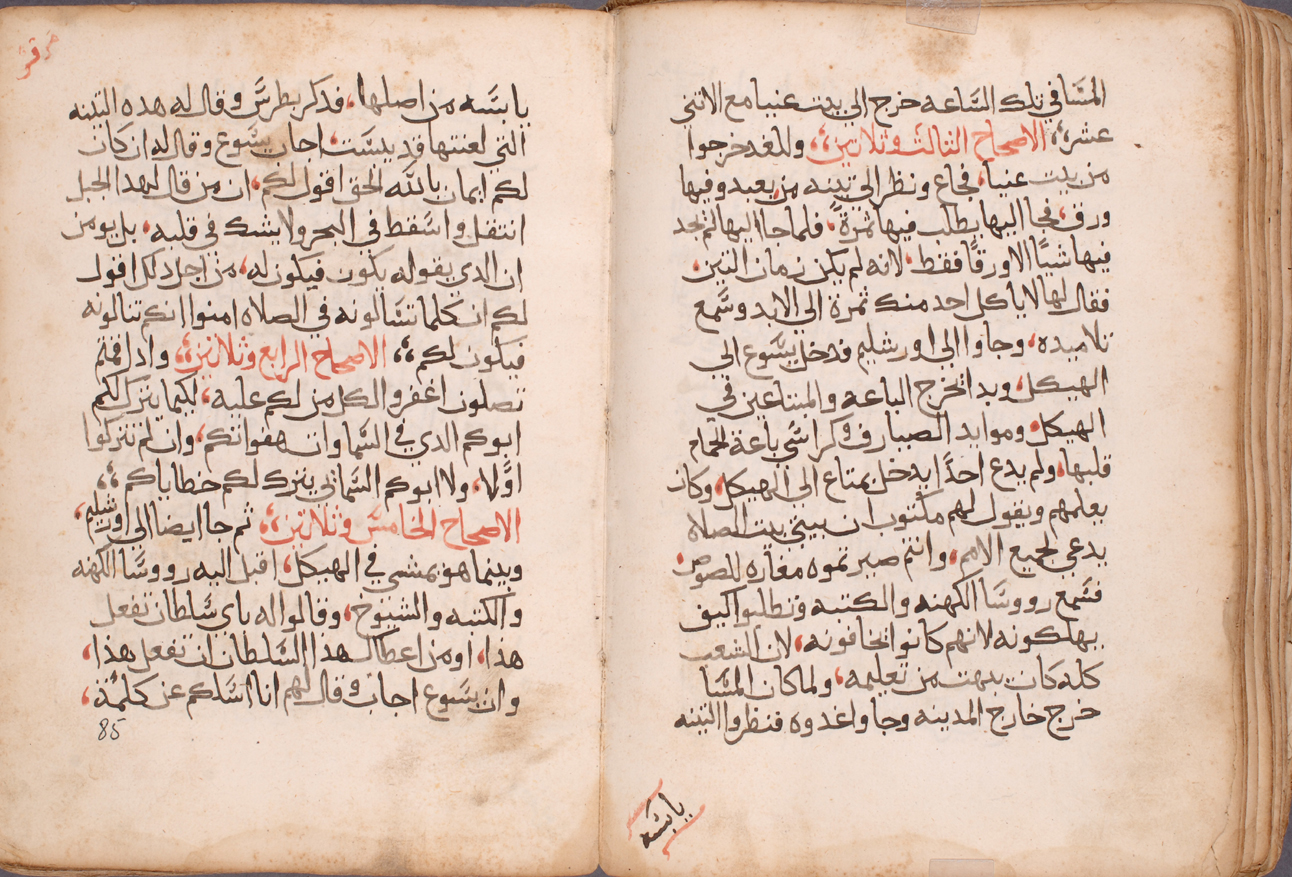 المسا في تلك الساعه خرج الي بيت عنيا مع الاتني
عشر، الاصحاح التالت وتلاتين، وللغد خرجوا
من بيت عنيا، فجاع ونظر الي تينه من بعيد وفيها
ورق، فجا اليها يطلب فيها تمرة، فلما جا اليها لم يجد
فيها شيًا الا ورقًا فقط، لانه لم يكن زمان التين،
فقال لها لا ياكل احد منك تمرة الي الابد وسمع
تلاميده، وجاوا الي اورشليم فدخل يسوع الي
الهيكل، وبدا يخرج الباعه والمبتاعين في
الهيكل، وموايد الصيارف وكراسي باعة الحمام
قلبها، ولم يدع احدًا يدخل بمتاع الي الهيكل، وكان
يعلمهم ويقول لهم مكتوب ان بيتي بيت الصلاه
يدعي لجميع الامم، وانتم صيرتموه مغاره للصوص،
فسمع رووسا الكهنه والكتبه وتطلبوا كيف
يهلكونه لانهم كانوا يخافونه، لان الشعب
كله كان يبهت من تعليمه، ولما كان المسا
خرج خارج المدينه وجاوا غدوه فنظروا التينه
يابسه
مرقس
يابسه من اصلها، فدكر بطرس وقال له هده التينه
التي لعنتها قد يبست، اجاب يسوع وقال له ان كان
لكم ايمان بالله الحق اقول لكم، ان من قال لهدا الجبل
انتقل واسقط في البحر ولا يشك في قلبه، بل يومن
ان الدي يقوله يكون فيكون له، من اجل دلك اقول
لكم ان كلما تسالونه في الصلاه امنوا انكم تنالونه
فيكون لكم، الاصحاح الرابع وتلاتين، وادا قمتم
تصلون اغفروا لكل من لكم عليه، لكيما يترك لكم
ابوكم الدي في السماوات هفواتكم، وان لم تتركوا
اولًا، ولا ابوكم السماني يترك لكم خطاياكم،
الاصحاح الخامس وتلاتين، تم جا ايضا الي اورشليم،
وبينما هو يمشي في الهيكل، اقبل اليه رووسا الكهنه
والكتبه والشيوخ، وقالوا له باي سلطان تفعل
هدا، او من اعطاك هدا السلطان ان تفعل هدا،
وان يسوع اجاب وقال لهم انا اسلكم عن كلمة،
85